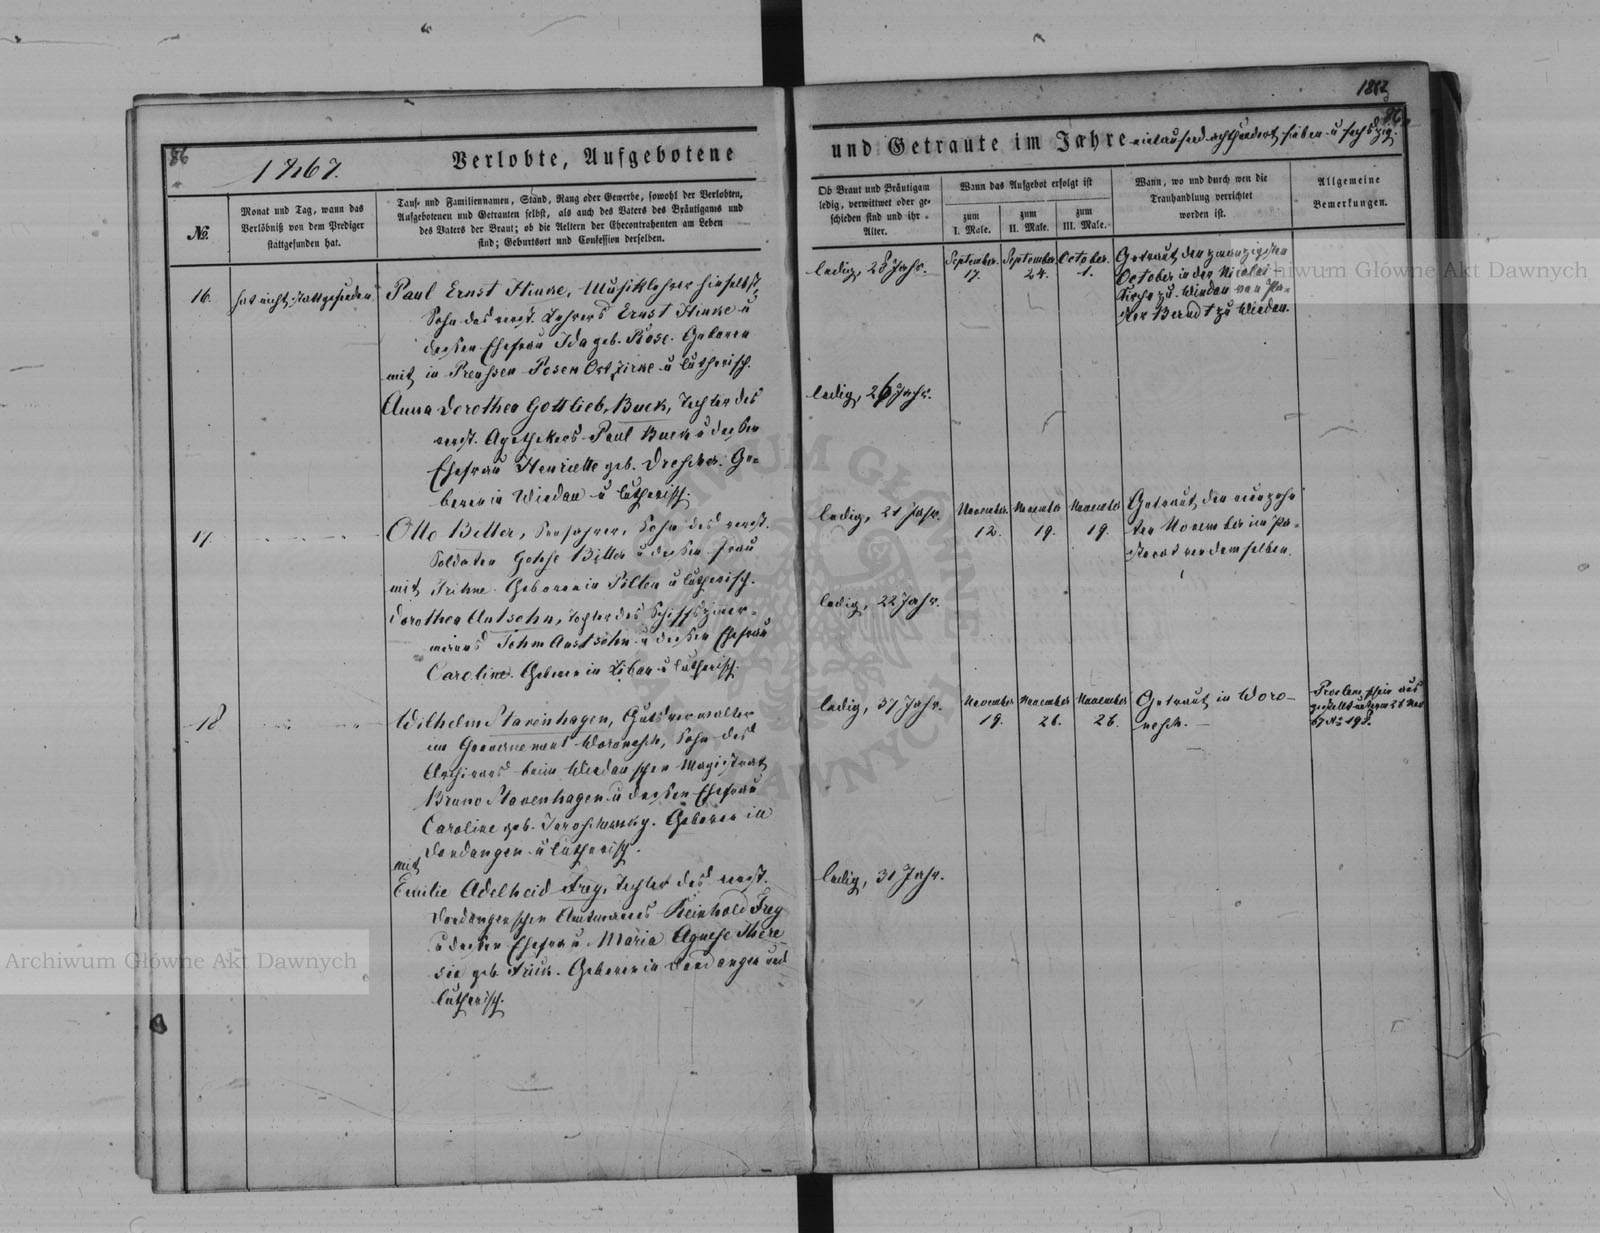 86
1867.
Verlobte, Aufgebotene
№.
Monat und Tag, wann das
Verlöbniß von dem Prediger
stattgefunden hat.
Tauf- und Familiennamen, Stand, Rang oder Gewerbe, sowohl der Verlobten,
Aufgebotenen und Getrauten selbst, als auch des Vaters des Bräutigams und
des Vaters der Braut; ob die Aeltern der Ehecontrahenten am Leben
sind; Geburtsort und Confession derselben.
16.
hat nicht stattgefunden
Paul Ernst Hinke, Musiklehrer hieselbst,
Sohn des verst. Lehrers Ernst Hinke u
dessen Ehefrau Ida geb. Rose. Geboren
mit in Preussen Posen Ort Zirke u lutherisch.
Anna Dorothea Gottlieb, Buck, Tochter des
verst. Apothekers Paul Buck u dessen
Ehefrau Henriette geb. Drescher. Ge-
boren in Windau u lutherisch.
17.
Otto Bitter, Seefahrer, Sohn des verst.
Soldaten Bitter u dessen Frau
mit Trihne. Geboren in Pilten u lutherisch.
Dorothea Antsohn, Tochter des Schiffszimer-
manns Antsohn u dessen Ehefrau
Caroline. Geboren in Libau u lutherisch.
18
Wilhelm Stavenhagen, Gutsverwalter
im Gouvernement Woronesch, Sohn des
Archivars beim Windauschen Magistrat
Bruno Stavenhagen u dessen Ehefrau
Caroline geb. Geboren in
Dondangen u lutherisch.
mit
Emilie Adelheid Frey, Tochter des verst.
Dondangenschen Amtmanns Reinhold Frey
u dessen Ehefrau Maria Agnese There
sia geb. Geboren in Dondangen und
lutherisch.
1863
86
und Getraute im Jahre eintausend achthundert sieben u sechszig.
Ob Braut und Bräutigam
ledig, verwittwet oder ge-
schieden sind und ihr
Alter.
Wann das Aufgebot erfolgt ist
zum
I. Male.
zum
II. Male.
zum
III. Male.
Wann, wo und durch wen die
Trauhandlung verrichtet
worden ist.
Allgemeine
Bemerkungen.
ledig, 28 Jahr.
September.
17.
September
24.
October.
1.
Getraut den zwanzigsten
October in der Nicolai-
Kirche zu Windau von Pa-
stor Berndt zu Windau.
ledig, 26 Jahr.
ledig, 21 Jahr.
November.
12.
November
19.
November
19.
Getraut den neunzehn
ten November im Pa-
storat von demselben.
ledig, 22 Jahr.
ledig, 37 Jahr.
November
19.
November
26.
November
26.
Getraut in Woro-
nesch. —
ledig, 31 Jahr.
Archiwum Główne Akt Dawnych
Archiwum Główne Akt Dawnych
ARCHIWUM GŁÓWNE AKT DAWNYCH